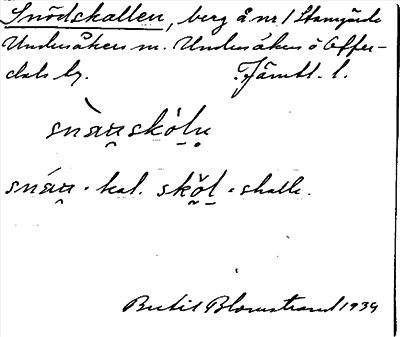 Snödskallen, berg å nr 1 Stamgärde
Undersåkers sn. Undersåkers o Offer-
dals tg. Jämtl. l.
snàu̯skólu̥
snáu̯ · kal. skŏ̤l · skalle.
Bertil Blomstrand 1934